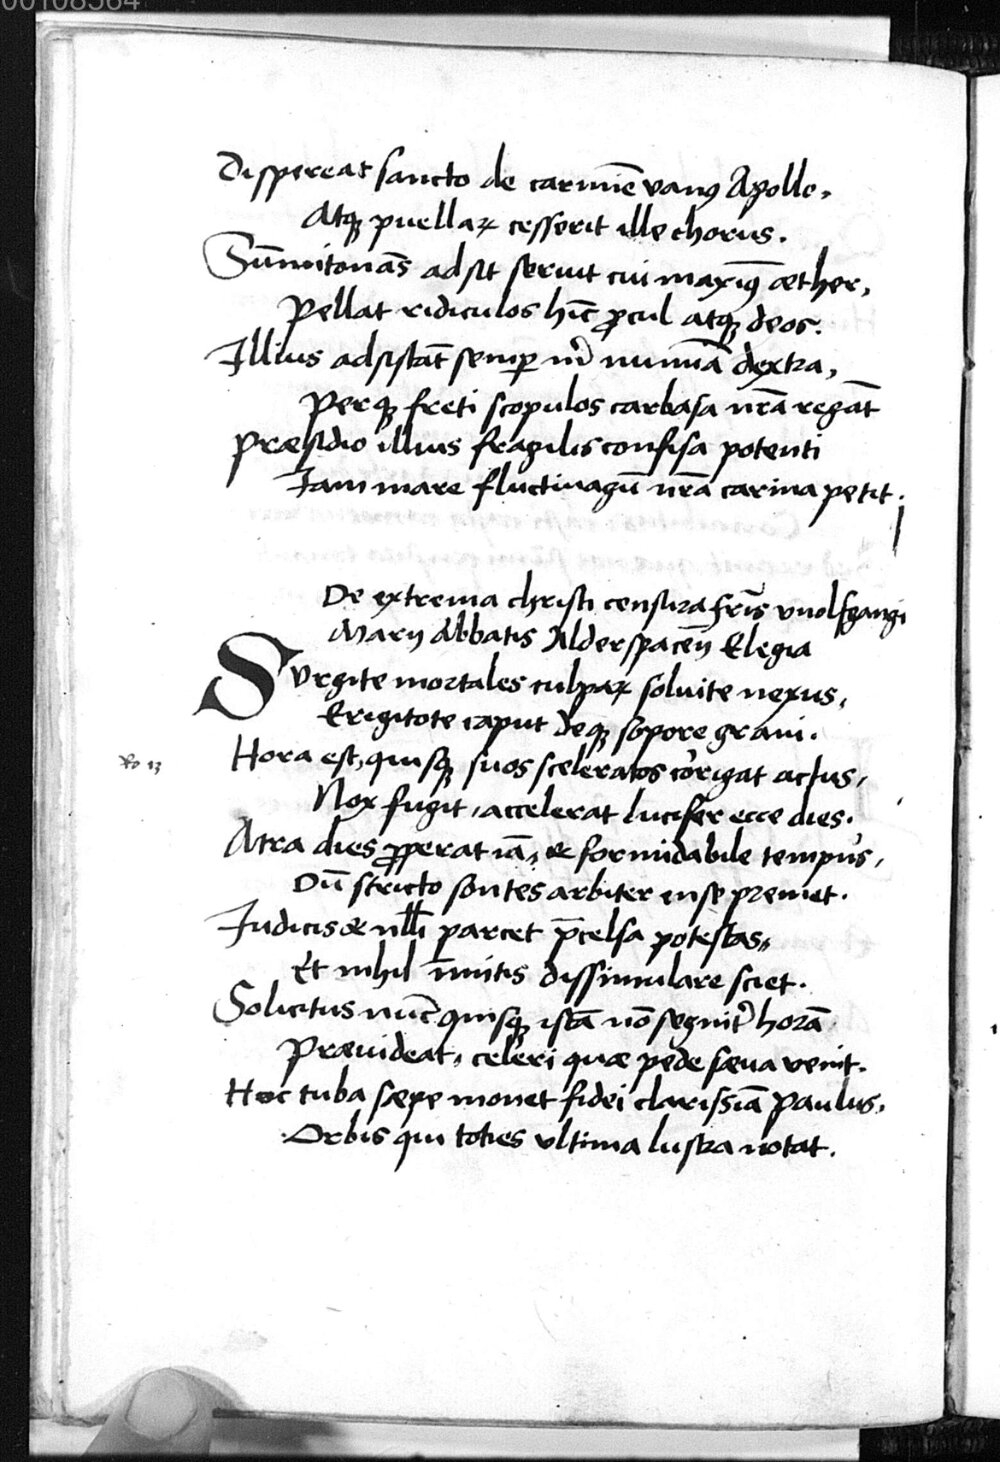 00108564
Dispereat sancto de carmiē vanꝯ Apollo,
Atqꝫ puellaꝝ cesserit ille chorus.
Sūmitonās adsit seruit cui maxiꝯ æther,
Pellat ridiculos hīc ꝓcul atqꝫ deos.
Illius adsistāt semꝑ m̄ numiā dextra,
Perqꝫ freti scopulos carbasa nr̄a regāt
Præsidio illius fragilis confisa potenti
Iam mare fluctiuagū nr̄a carina petit.
De extrema christi censura fr̄is vuolfgangi
Marij Abbatis Alderspaceñ Elegia
SVrgite mortales culpaꝝ soluite nexus,
Erigitote caput deqꝫ sopore graui.
Ro 13
Hora est, quisqꝫ suos sceleratos cōrigat actus,
Nox fugit, accelerat lucifer ecce dies.
Atra dies ꝓperat iā, & formidabile tempus,
Dū stricto sontes arbiter ense premet.
Iudicis & nlli parcet p̄celsa potestas,
Et nihil īmitis dissimulare sciet.
Solicitus nūc quisqꝫ istā nō segnit̉ horā
Præuideat, celeri quæ pede sæua venit.
Hoc tuba sæpe monet fidei clarissiā Paulus,
Orbis qui toties vltima lustra notat.